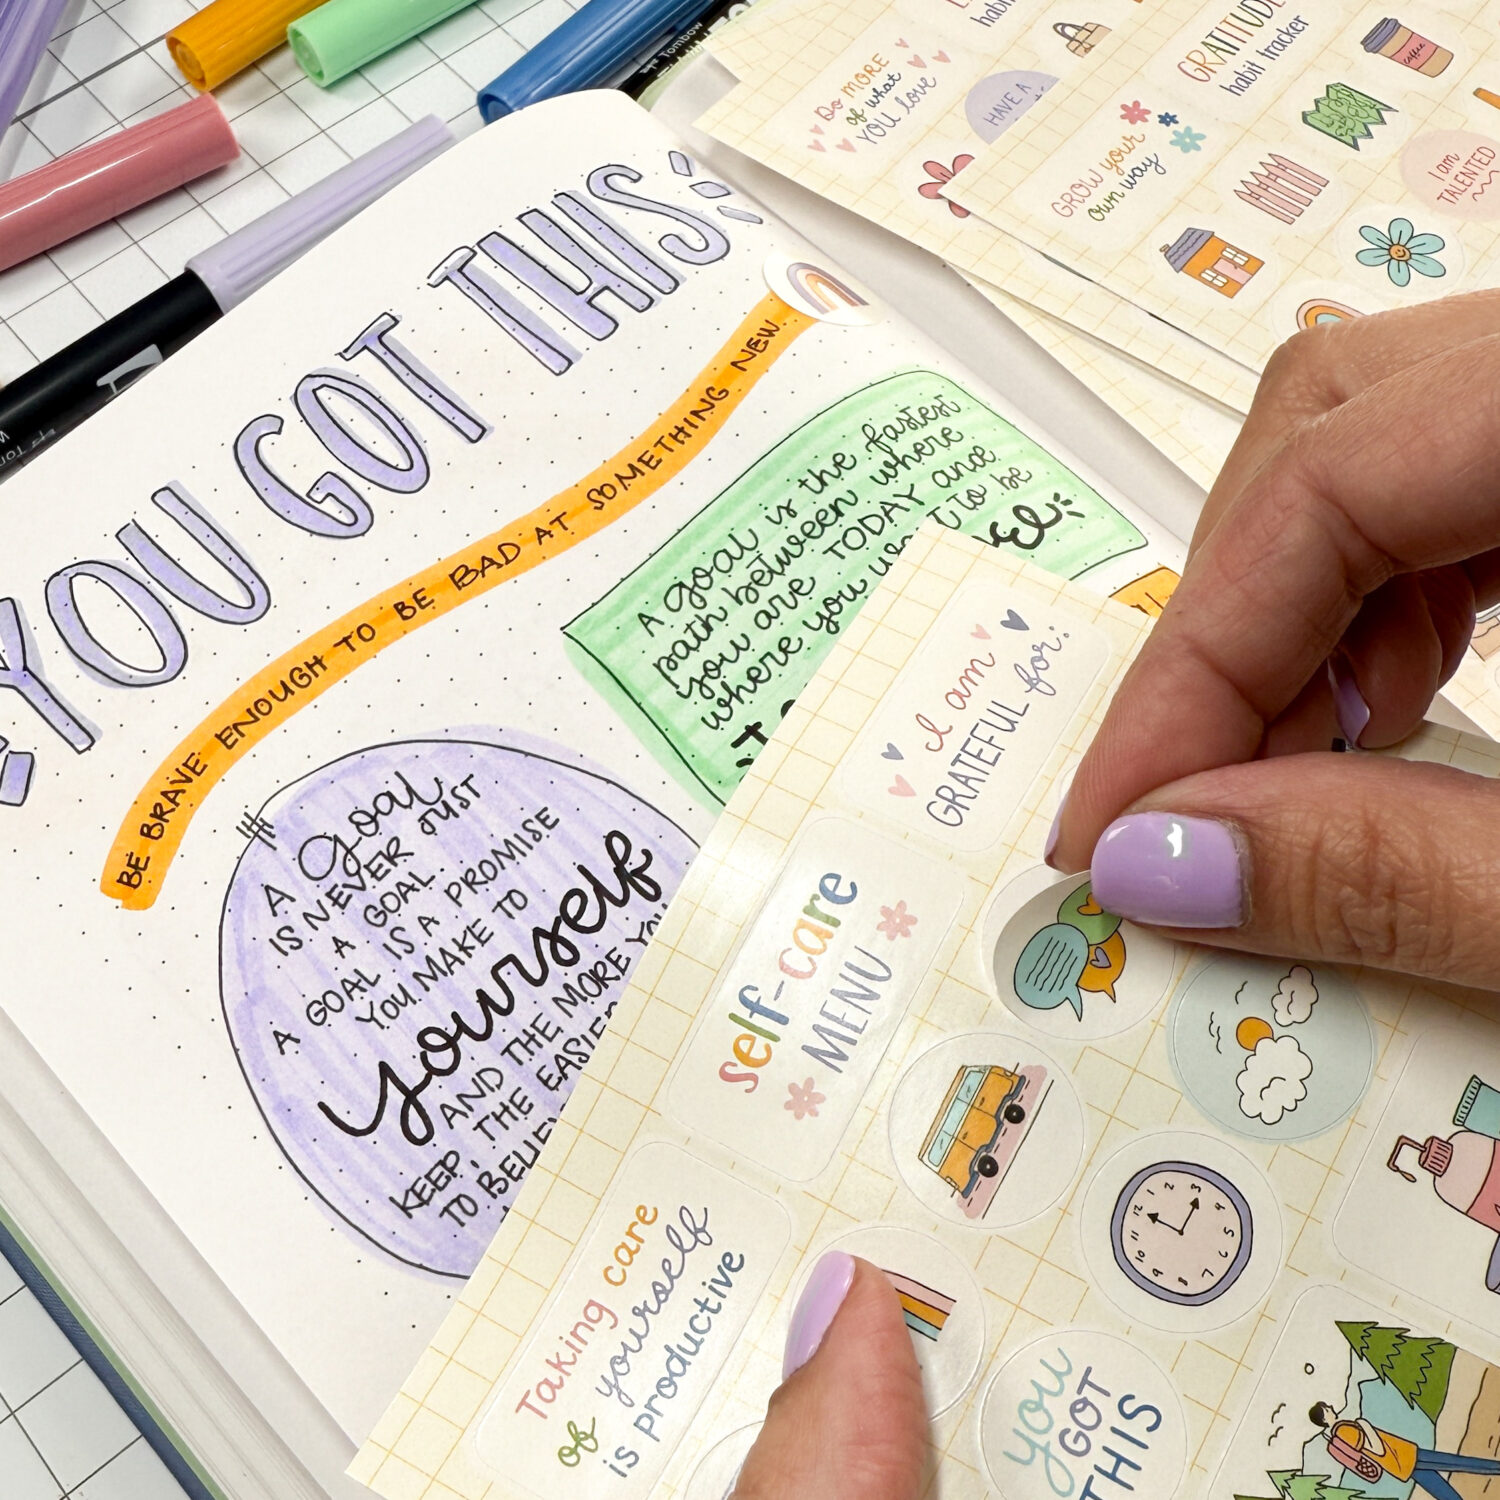 YOU GOT THIS
BE BRAVE ENOUGH TO BE BAD AT SOMETHING NEW
A goal is the fastest
path between where
you are TODAY and
where you
to be
A goal
IS NEVER JUST
A GOAL.
A GOAL IS A PROMISE
YOU MAKE TO
yourself
AND THE MORE YOU
KEEP, THE EASIER
TO BELIEV
Tombow
Do MORE
of what
YOU love
HAVE A
habit
GRATITUDE
habit tracker
coffee
GROW your
own way
I am
TALENTED
I am
GRATEFUL for:
self-care
MENU
Taking care
of yourself
is productive
12 1 2 3 4 5 6 7 8 9 10 11
you
GOT
THIS